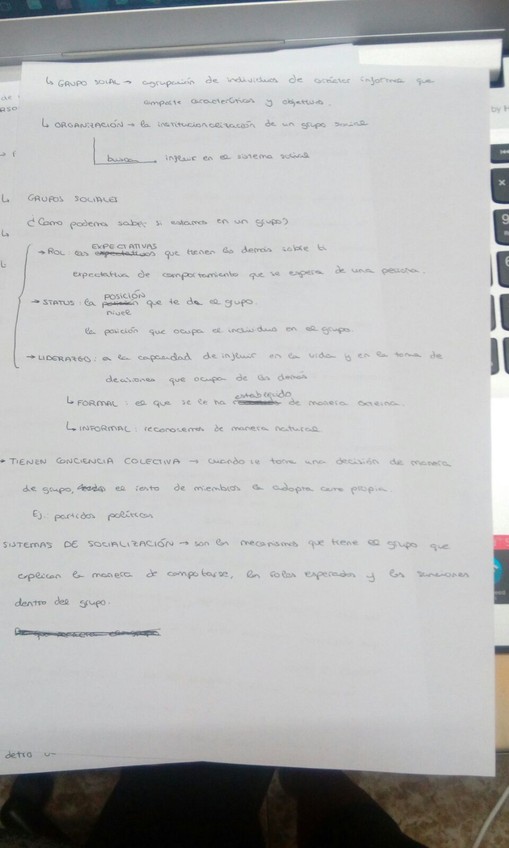 ↳ GRUPO SOCIAL → agrupación de individuos de carácter informal que
comparte características y objetivos.
↳ ORGANIZACIÓN → la institucionalización de un grupo social
buscan → influir en el sistema social
↳ GRUPOS SOCIALES
¿Como podemos saber si estamos en un grupo?
→ ROL: las EXPECTATIVAS que tienen los demás sobre la
expectativa de comportamiento que se espera de una persona.
→ STATUS: la POSICIÓN que te da el grupo.
nivel
la posición que ocupa el individuo en el grupo.
→ LIDERAZGO: es la capacidad de influir en la vida y en la toma de
decisiones que ocupa de los demás
↳ FORMAL: el que se le ha establecido de manera
↳ INFORMAL: reconocemos de manera natural
→ TIENEN CONCIENCIA COLECTIVA → cuando se toma una decisión de manera
de grupo, el resto de miembros la adopta como propia.
Ej: partidos políticos
SISTEMAS DE SOCIALIZACIÓN → son los mecanismos que tiene el grupo que
explican la manera de comportarse, los roles esperados y las sanciones
dentro del grupo.
detro